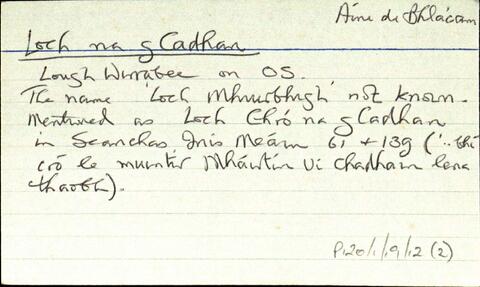 Áine de Bhlácam
Loch na gCadhan
Lough Wirrabee on OS.
The name 'Loch Mhuirbhigh' not known.
Mentioned as Loch Chró na gCadhan
in Seanchas Inis Meáin 61 + 139 ('.. bhí
cró le muintir Mháirtín Uí Chadhain lena
thaobh).
P120/1/19/12 (2)